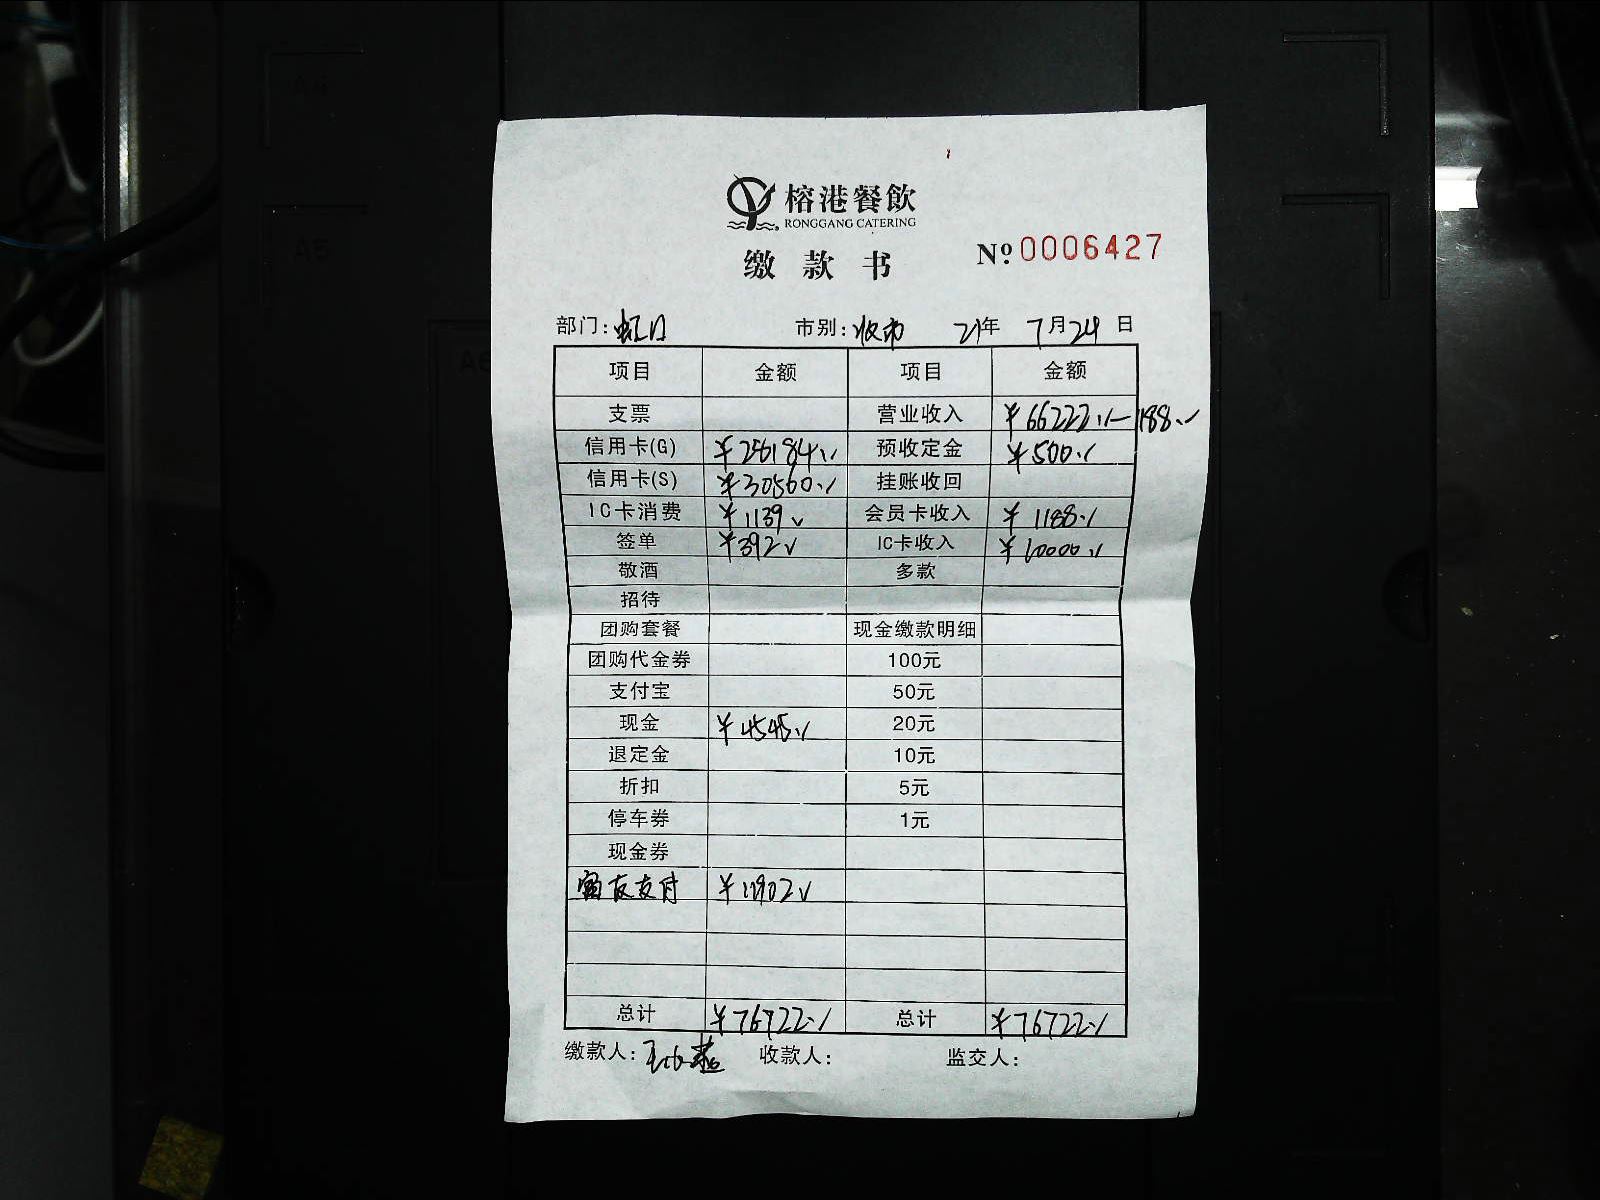 榕港餐飲
RONGGANG CATERING
缴款书
№ 0006427
部门: 虹口 市别: 收市 21年 7月24日
项目 金额 项目 金额
支票 营业收入 ￥66222.-1188.-
信用卡(G) ￥28184.- 预收定金 ￥500.-
信用卡(S) ￥30560.- 挂账收回
IC卡消费 ￥1139 会员卡收入 ￥1188.-
签单 ￥392 IC卡收入 ￥10000.-
敬酒 多款
招待
团购套餐 现金缴款明细
团购代金券 100元
支付宝 50元
现金 ￥4545.- 20元
退定金 10元
折扣 5元
停车券 1元
现金券
富友支付 ￥11902
总计 ￥76722.- 总计 ￥76722.-
缴款人: 收款人: 监交人:
A5
A6